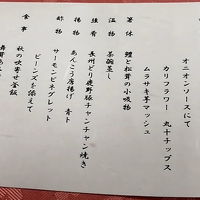 オニオンソースにて
カリフラワー 丸十チップス
ムラサキ芋マッシュ
箸休 鱧と松茸の小吸物
温物 茶碗蒸し
強肴 長州どり鹿野豚チャンチャン焼き
揚物 あんこう唐揚げ 青ト
酢物 サーモンビネグレット
ビーンズを添えて
食事 秋の吹寄せ釜飯